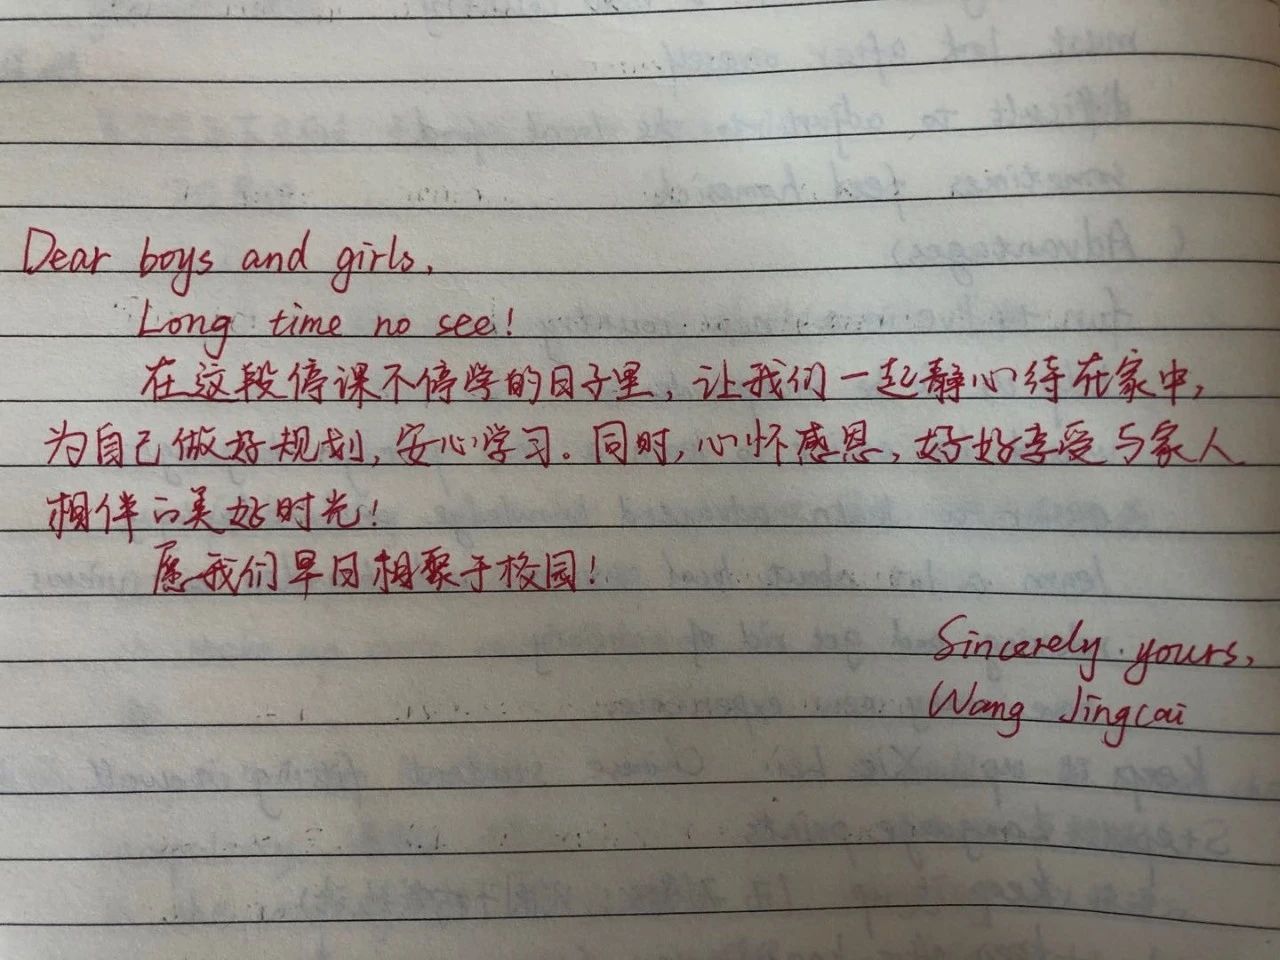 Dear boys and girls,
Long time no see!
在这段停课不停学的日子里，让我们一起静心待在家中，
为自己做好规划，安心学习。同时，心怀感恩，好好享受与家人
相伴的美好时光！
愿我们早日相聚于校园！
Sincerely yours,
Wang Jingcai